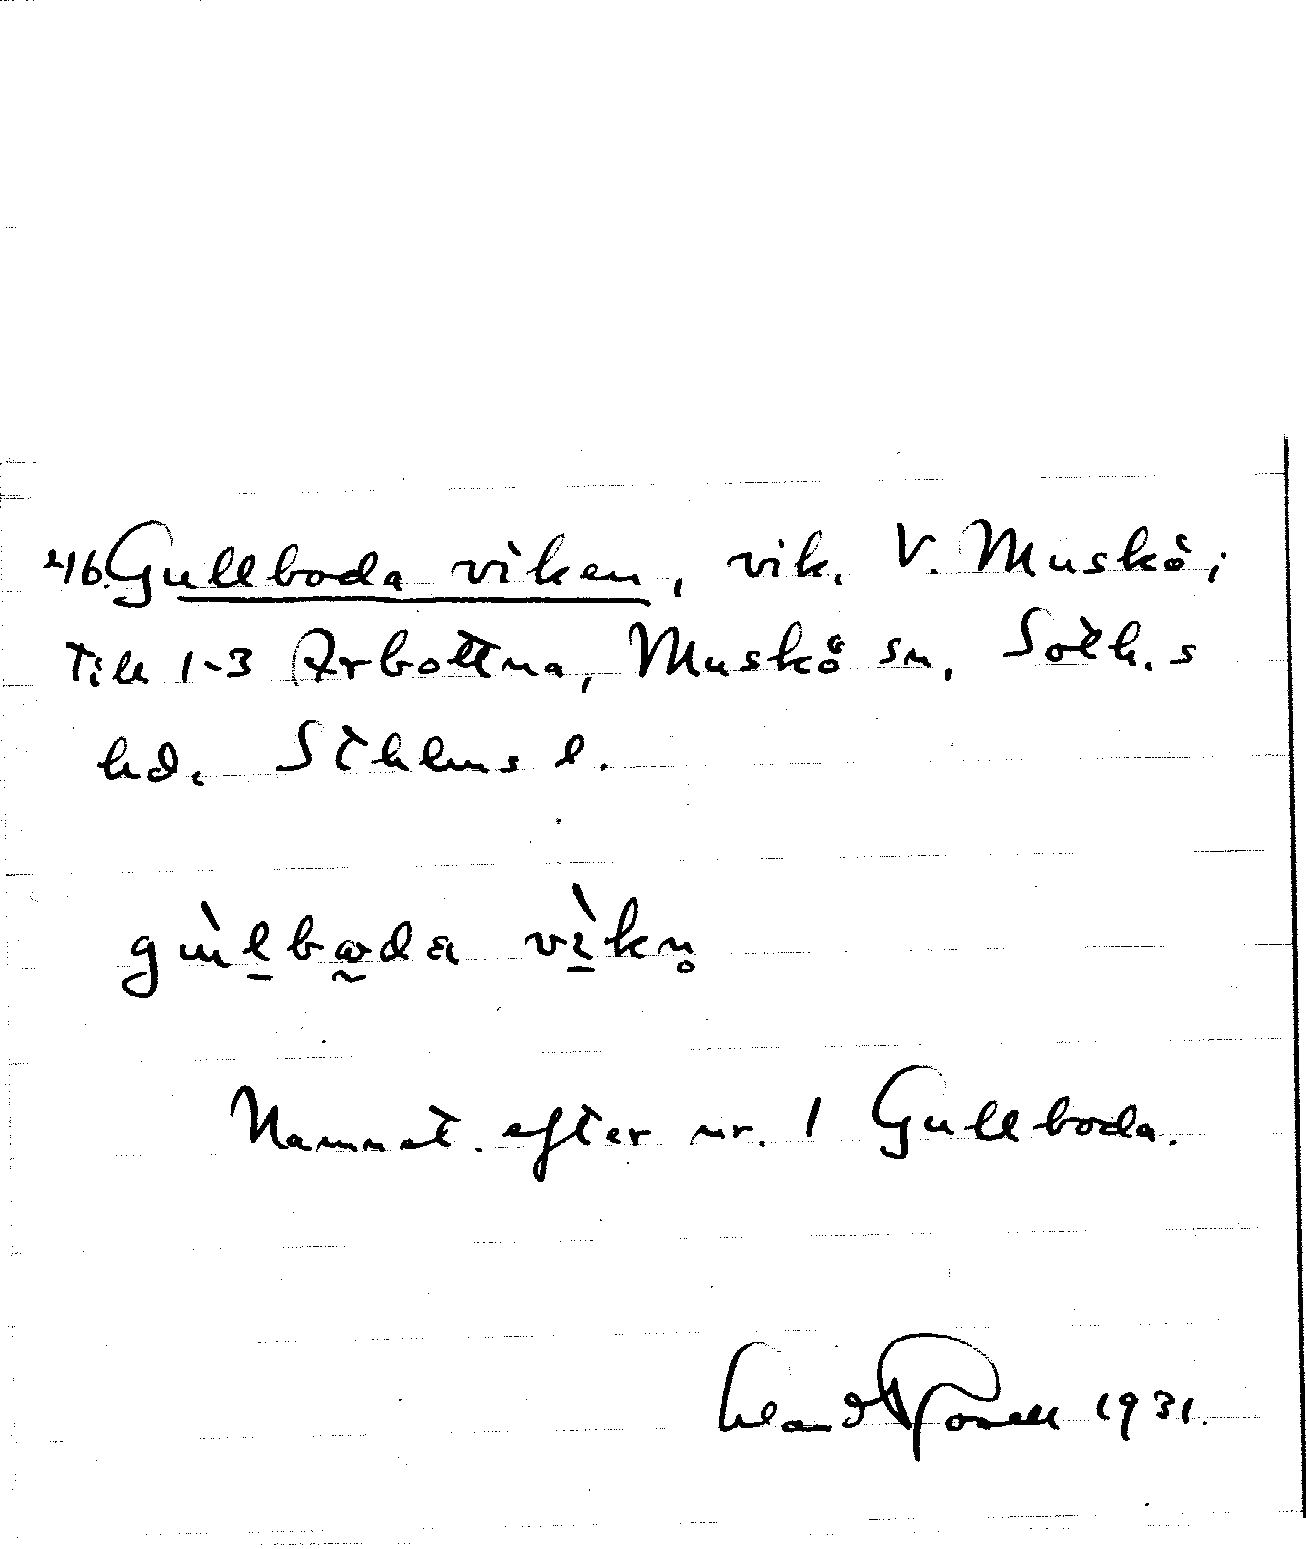 246. Gullboda viken, vik. V. Muskö;
till 1-3 Arbottna, Muskö sn, Soth.s
hd. Sthlms l.
Namnet efter nr. 1 Gullboda.
1931.